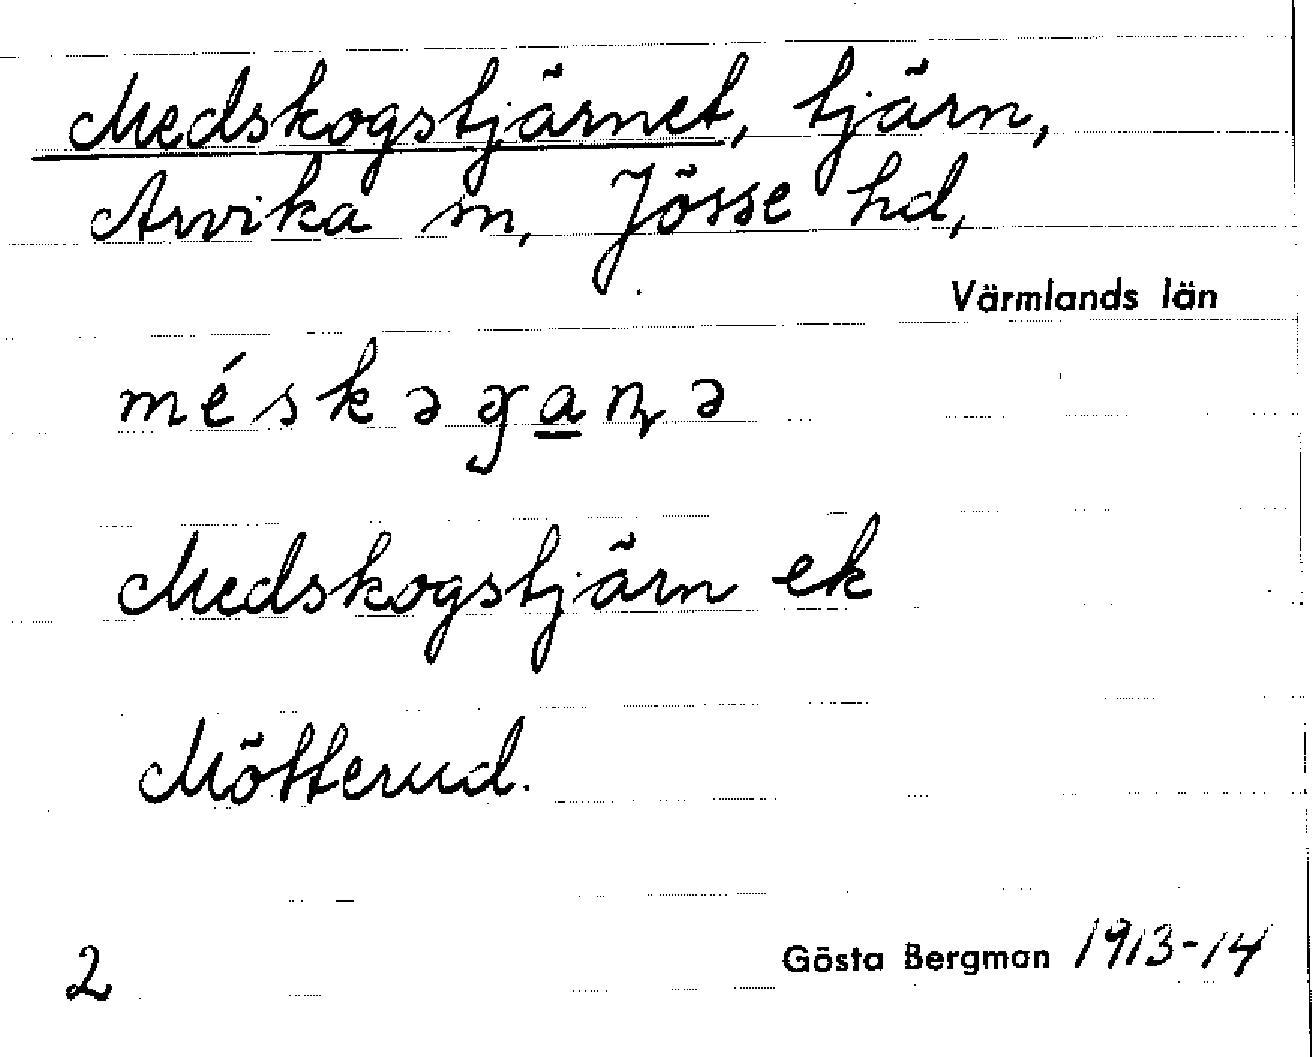 Medskogstjärnet, tjärn,
Arvika sn, Jösse hd,
Värmlands län
méskəɟa̲ɳə
Medskogstjärn ek
Mötterud.
2 Gösta Bergman 1913-14